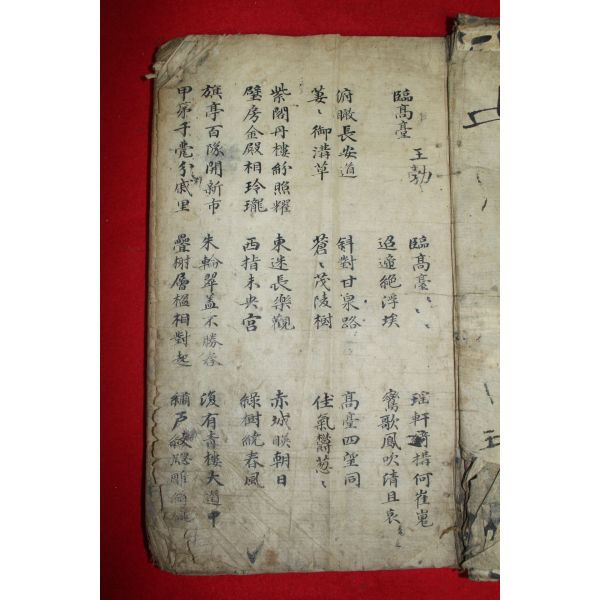 臨高臺 王勃
臨高臺〻〻
迢遰絕浮埃
瑤軒綺構何崔嵬
鸞歌鳳吹清且哀
俯瞰長安道
萋〻御溝草
斜對甘泉路
蒼〻茂陵樹
高臺四望同
佳氣鬱葱〻
紫閣丹樓紛照耀
璧房金殿相玲瓏
東迷長樂觀
西指未央宮
赤城暎朝日
綠樹繞春風
旗亭百隊開新市
甲第千甍分戚里
朱輪翠盖不勝春
疊榭層楹相對起
復有青樓大道中
繡戶窓雕